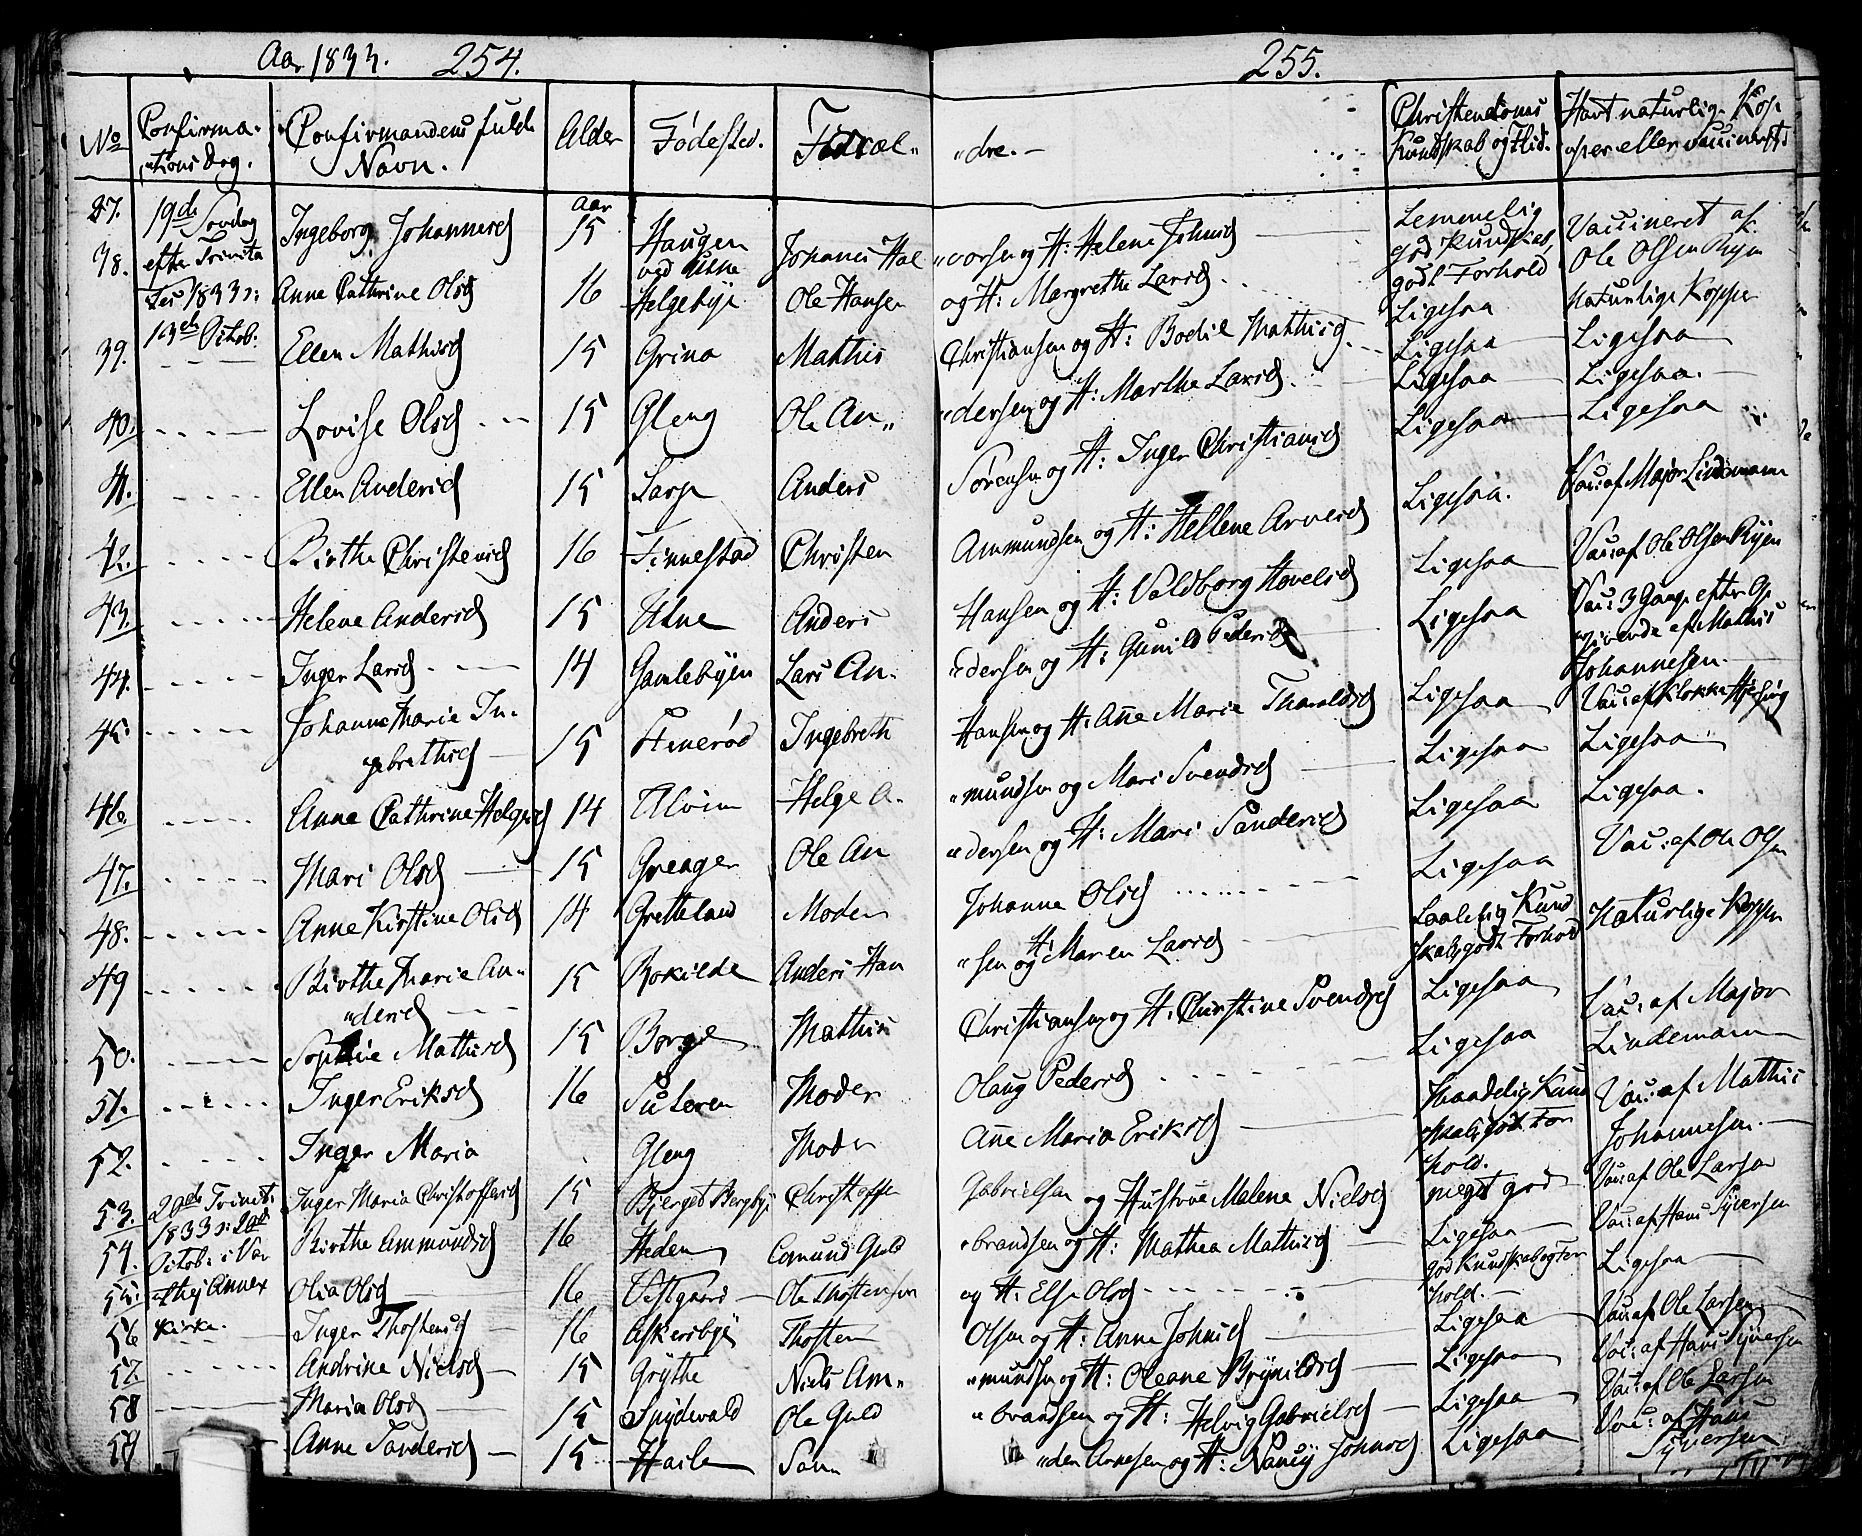 Aar 1833. 254.
255.
No
Confirma-
tions Dag.
Confirmandens fulde
Navn.
Alder
Fødested.
Foræl-
dre.
Christendoms
Kundskab og Flid.
Havt naturlig Kop-
per eller vaccineret
37. 19de Søndag Ingeborg Johannesd 15 Aar Haugen Johanes Hal vorsen og H: Helene Johnsd Temmelig god Kundskab, godt Forhold Vaccineret af Ole Olsen Ryen
38. efter Trinita tes 1833 Anne Cathrine Olsd 16 Helgebye Ole Hansen og H: Margrethe Larsd Ligesaa Naturlige Kopper
39. 13de Octob: Ellen Mathisd 15 Grina Mathis Christiansen og H: Bodil Mathisd. Ligesaa Ligesaa
40. Lovise Olsd 15 Gleng Ole An dersen og H: Marthe Larsd. Ligesaa Ligesaa.
41. Ellen Andersd 15 Sarp Anders Sørensen og H: Inger Christiansd Ligesaa Ligesaa
42. Birthe Christensd 16 Finnestad Christen Ammundsen og H: Hellene Arvesd Ligesaa. Vac: af Major Lindemann
43. Helene Andersd 15 Utne Anders Hansen og H: Valdborg Hovelsd Ligesaa Vac: af Ole Olsen Ryen
44. Inger Larsd 14 Gamlebyen Lars An dersen og H: Gunild Pedersd Ligesaa Vac: 3 Gange efter af Mathis Johannesen.
45. Johanne Marie In gebrethsd 15 Ingebreth Hansen og H: Ane Marie Tharaldsd Ligesaa Vac: af Klokker
46. Anne Cathrine Helgesd 14 Alvim Helge A mundsen og Mari Svendsd Ligesaa Ligesaa
47. Mari Olsd 15 Greager Ole An dersen og H: Mari Sandersd Ligesaa Ligesaa.
48. Anne Kirstine Olsd 14 Gretteland Moder Johanne Olsd Ligesaa Vac: af Ole Olsen
49 Birthe Marie An dersd 15 Rokilde Anders Han sen og H: Maren Larsd Taalelig Kund skab, godt Forhold Naturlige Kopper
50. Sophie Mathisd 15 Borge Mathis Christiansen og H: Christine Svendsd Ligesaa Vac: af Major
51. Inger Eriksd 16 Moder Olaug Pedersd Ligesaa Lindemann
52. Inger Maria Gleng Moder Ane Maria Eriksd Maadelig Kund skab, god For hold. Vac: af Mathis Johannesen.
53. 20de Trinit: Inger Maria Christoffersd 15 Bjerget Bergbye Christoffer Gabrielsen og Hustrue Malene Nielsd meget god Vac: af Ole Larsen
54. 1833 Birthe Ammundsd 16 Heden Amund Guld brandsen og H: Mathea Mathisd Ligesaa Vac: af Hans Syversen
55. Octob: i Var Olia Olsd 16 Vestgaard Ole Thostensen og H: Else Olsd god Kundskab og For hold. Ligesaa
56 Annex Kirke. Inger Thostensd 16 Askersbye Thosten Olsen og H: Anne Johnsd Ligesaa Vac: af Ole Larsen
57. Andrine Nielsd 15 Grythe Niels Am mundsen og H: Oleane Brynildsd Ligesaa Vac: af Hans Syversen
58 Maria Olsd 15 Snydevald Ole Guld brandsen og H: Helvig Gabrielsd Ligesaa Vac: af Ole Larsen
59 Anne Sandersd 15 Haile San den Arnesen og H: Nancy Johnsd Ligesaa Vac: af Hans Syversen